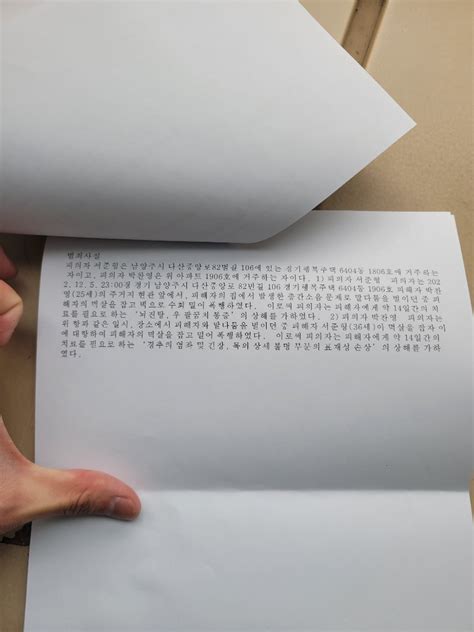 범죄사실
피의자 서준형은 남양주시 다산중앙로82번길 106에 있는 경기행복주택 6404동 1806호에 거주하는
자이고, 피의자 박찬영은 위 아파트 1906호에 거주하는 자이다. 1) 피의자 서준형 피의자는 202
2. 12. 5. 23:00경 경기 남양주시 다산중앙로 82번길 106 경기행복주택 6404동 1906호 피해자 박찬
영(25세)의 주거지 현관 앞에서, 피해자의 집에서 발생한 층간소음 문제로 말다툼을 벌이던 중 피
해자의 멱살을 잡고 벽으로 수회 밀어 폭행하였다. 이로써 피의자는 피해자에게 약 14일간의 치
료를 필요로 하는 '뇌진탕, 우 팔꿈치 통증' 의 상해를 가하였다. 2) 피의자 박찬영 피의자는
위 항과 같은 일시, 장소에서 피해자와 말다툼을 벌이던 중 피해자 서준형(36세)이 멱살을 잡자 이
에 대항하여 피해자의 멱살을 잡고 밀어 폭행하였다. 이로써 피의자는 피해자에게 약 14일간의
치료를 필요로 하는 '경추의 염좌 및 긴장, 목의 상세 불명 부분의 표재성 손상' 의 상해를 가하
였다.